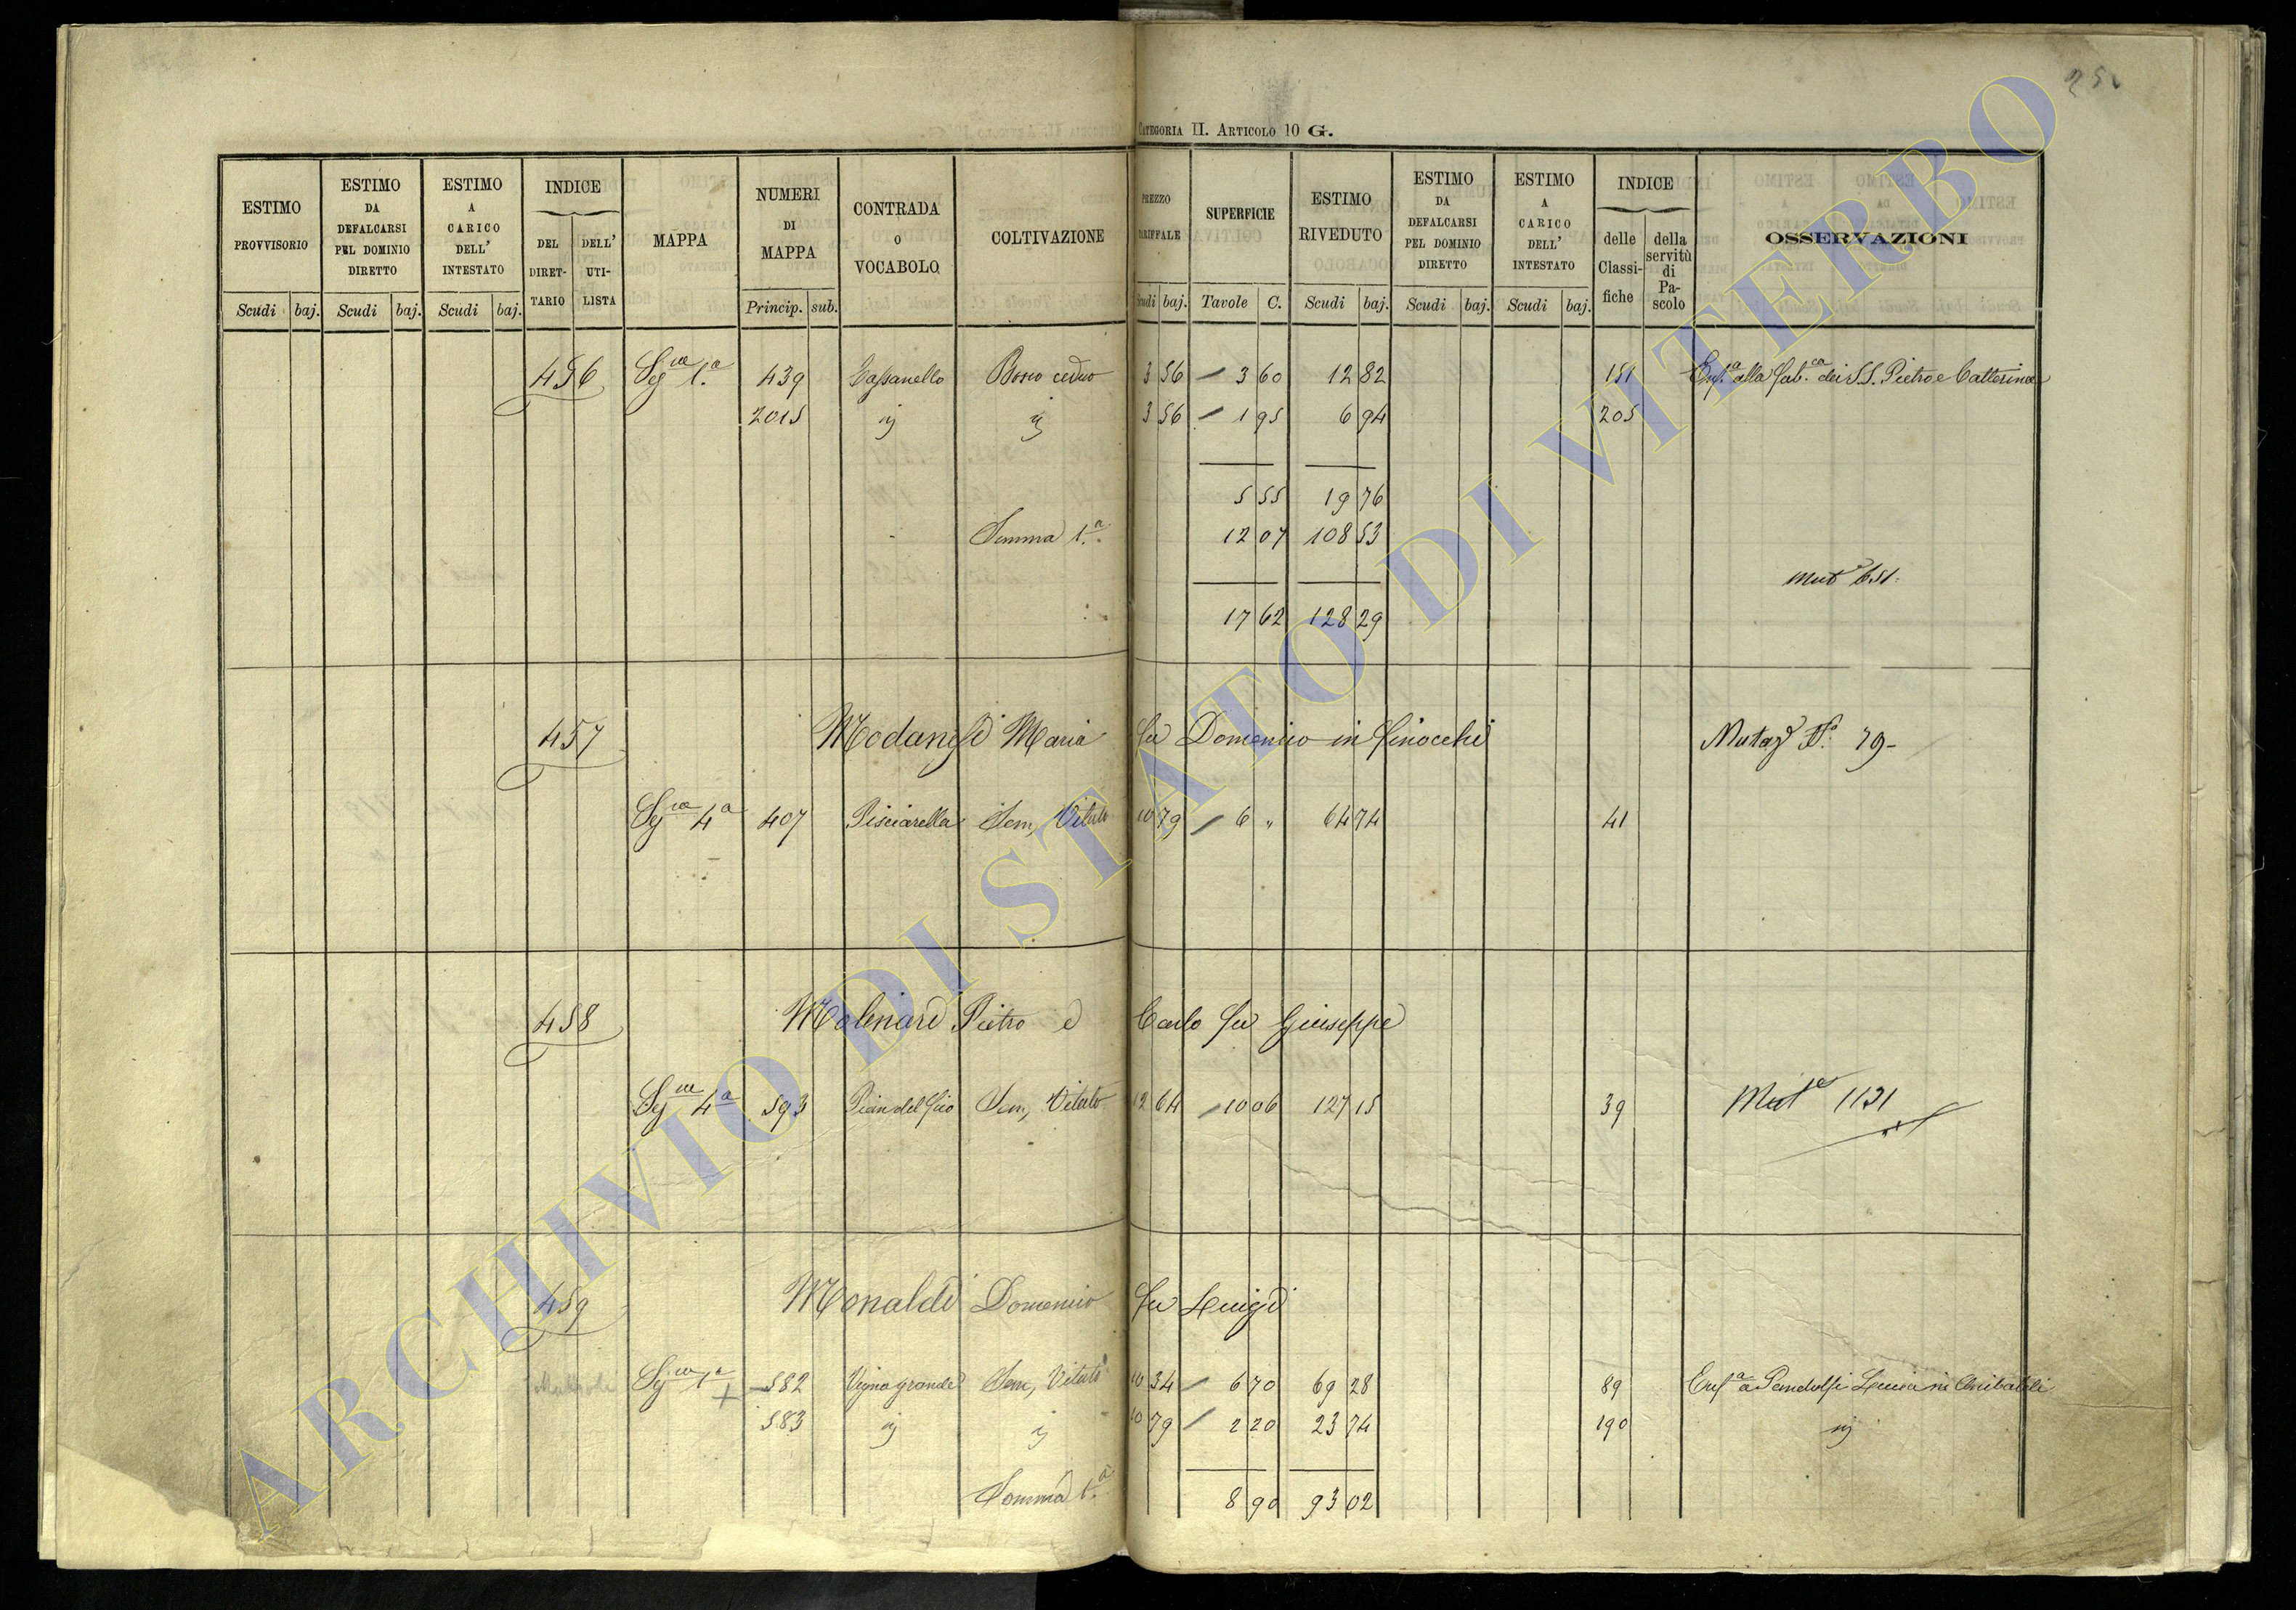 CATEGORIA II. ARTICOLO 10 G.
ESTIMO PROVVISORIO Scudi baj.
ESTIMO DA DEFALCARSI PEL DOMINIO DIRETTO Scudi baj.
ESTIMO A CARICO DELL' INTESTATO Scudi baj.
INDICE DEL DIRET-TARIO DELL' UTI-LISTA
MAPPA
NUMERI DI MAPPA Princip. sub.
CONTRADA O VOCABOLO
COLTIVAZIONE
PREZZO TARIFFALE Scudi baj.
SUPERFICIE Tavole C.
ESTIMO RIVEDUTO Scudi baj.
ESTIMO DA DEFALCARSI PEL DOMINIO DIRETTO Scudi baj.
ESTIMO A CARICO DELL' INTESTATO Scudi baj.
INDICE delle Classi-fiche della servitù di Pa-scolo
OSSERVAZIONI
456 Seg.ne 1.a 439 Bosco ceduo 3 56 3 60 12 82 151 Enf.a alla Fab.ca dei SS. Pietro e Catterina
2015 ij ij 3 56 1 95 6 94 205
5 55 19 76
Somma 1.a 12 07 108 53
Mut.e 651
17 62 128 29
457 Modanesi Maria fu Domenico in Finocchi Mutaz.e N.o 79
Seg.ne 4.a 407 Pisciarella Sem. Vitato 10 79 6 " 64 74 41
458 Molinari Pietro e Carlo fu Giuseppe
Seg.ne 4.a 593 Sem. Vitato 12 64 10 06 127 15 39 Mut.e 1131
459 Monaldi Domenico fu Luigi
Seg.ne 1.a 582 Vigna grande Sem. Vitato 10 34 6 70 69 28 89 Enf.a a Pandolfi Luisa in Anibaldi
583 ij ij 10 79 2 20 23 74 190 ij
Somma 1.a 8 90 93 02
ARCHIVIO DI STATO DI VITERBO